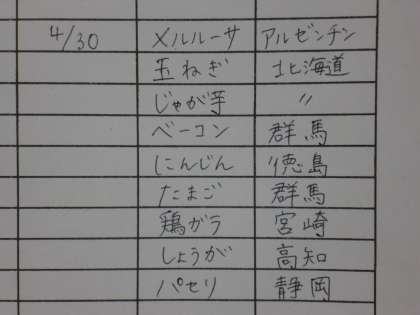 4/30 メルルーサ アルゼンチン
玉ねぎ 北海道
じゃが芋 〃
ベーコン 群馬
にんじん 徳島
たまご 群馬
鶏ガラ 宮崎
しょうが 高知
パセリ 静岡